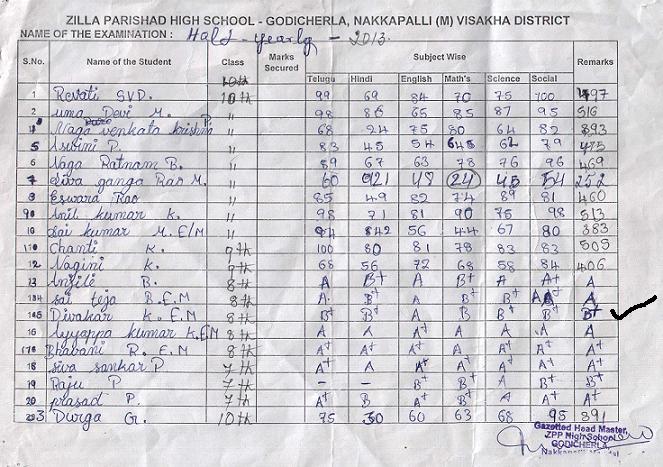 ZILLA PARISHAD HIGH SCHOOL - GODICHERLA, NAKKAPALLI (M) VISAKHA DISTRICT
NAME OF THE EXAMINATION : Half-yearly - 2013.
S.No. Name of the Student Class Marks Secured Subject Wise Remarks
Telugu Hindi English Math's Science Social
1 Revati SVD. 10th 99 69 84 70 75 100 497
2 uma Devi M. " 98 86 65 85 87 95 516
Naga venkata krishna P. " 68 24 75 80 64 82 393
5 Asvini P. " 83 45 54 79
6 Naga Ratnam B. " 89 67 63 78 76 96 469
7 Siva ganga Rao M. " 60 48 24 45 54 252
8 Eswara Rao " 85 49 82 74 89 81 460
Anil kumar K. " 98 71 81 90 75 98 513
10 Sai kumar M. E/M " 56 44 67 80 383
Chanti K. 9th 100 80 81 78 83 83 505
12 Nagini K. 9th 68 56 72 68 58 84 406
13 B. 8th A B+ A B+ A A+ A
sai teja B.E.M 8th A B+ A B+ B+ A
Divakar K. E.M 8th B+ B+ A B B+ B+ B+
Ayyappa kumar K.E.M 8th A A A+ A A A+ A
Bhavani R. E.M 8th A+ A+ A+ A A+ A+ A+
18 Siva sankar P 7th A+ A A+ A+ A+ A+ A+
19 Raju P 7th - - B+ B+ A B+ B+
20 prasad P. 7th A B A+ A+ A A+ A+
Durga G. 10th 75 30 60 63 68 95 391
Gazetted Head Master,
ZPP High School
GODICHERLA,
Nakkapalli Mandal